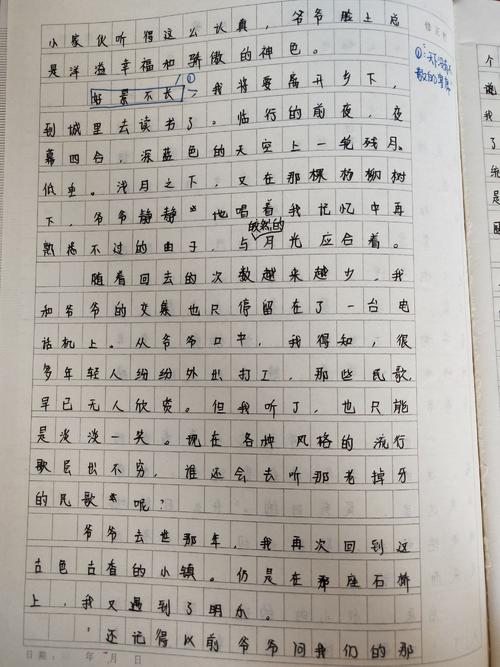 小家伙听得这么认真，爷爷脸上总
是洋溢幸福和骄傲的神色。
好景不长，我将要离开乡下，
到城里去读书了。临行的前夜，夜
幕四合，深蓝色的天空上一轮残月。
低垂。浅月之下，又在那棵杨柳树
下，爷爷静静地唱着我记忆中再
熟悉不过的曲子，与皎然的月光应合着。
随着回去的次数越来越少，我
和爷爷的交集也只停留在了一台电
话机上。从爷爷口中，我得知，很
多年轻人纷纷外出打工，那些民歌，
早已无人欣赏。但我听了，也只能
是淡淡一笑。现在各种风格的流行
歌层出不穷，谁还会去听那老掉牙
的民歌呢？
爷爷去世那年，我再次回到这
古色古香的小镇。仍是在那座石桥
上，我又遇到了明尔。
“还记得以前爷爷问我们的那
日期： 年 月 日
①
①